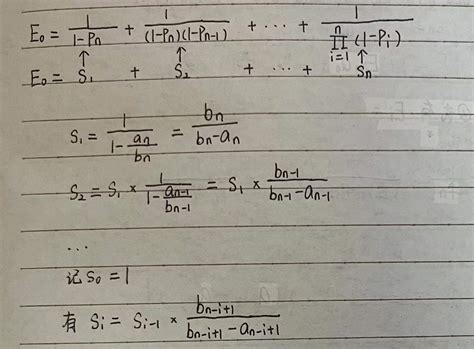 E₀ = 1/(1-Pn) + 1/((1-Pn)(1-Pn-1)) + ... + 1/(∏_{i=1}^{n}(1-Pi))
↑ ↑ ↑
E₀ = S₁ + S₂ + ... + Sn
S₁ = 1/(1 - an/bn) = bn/(bn - an)
S₂ = S₁ × 1/(1 - an-1/bn-1) = S₁ × bn-1/(bn-1 - an-1)
...
记 S₀ = 1
有 Si = Si-1 × bn-i+1/(bn-i+1 - an-i+1)